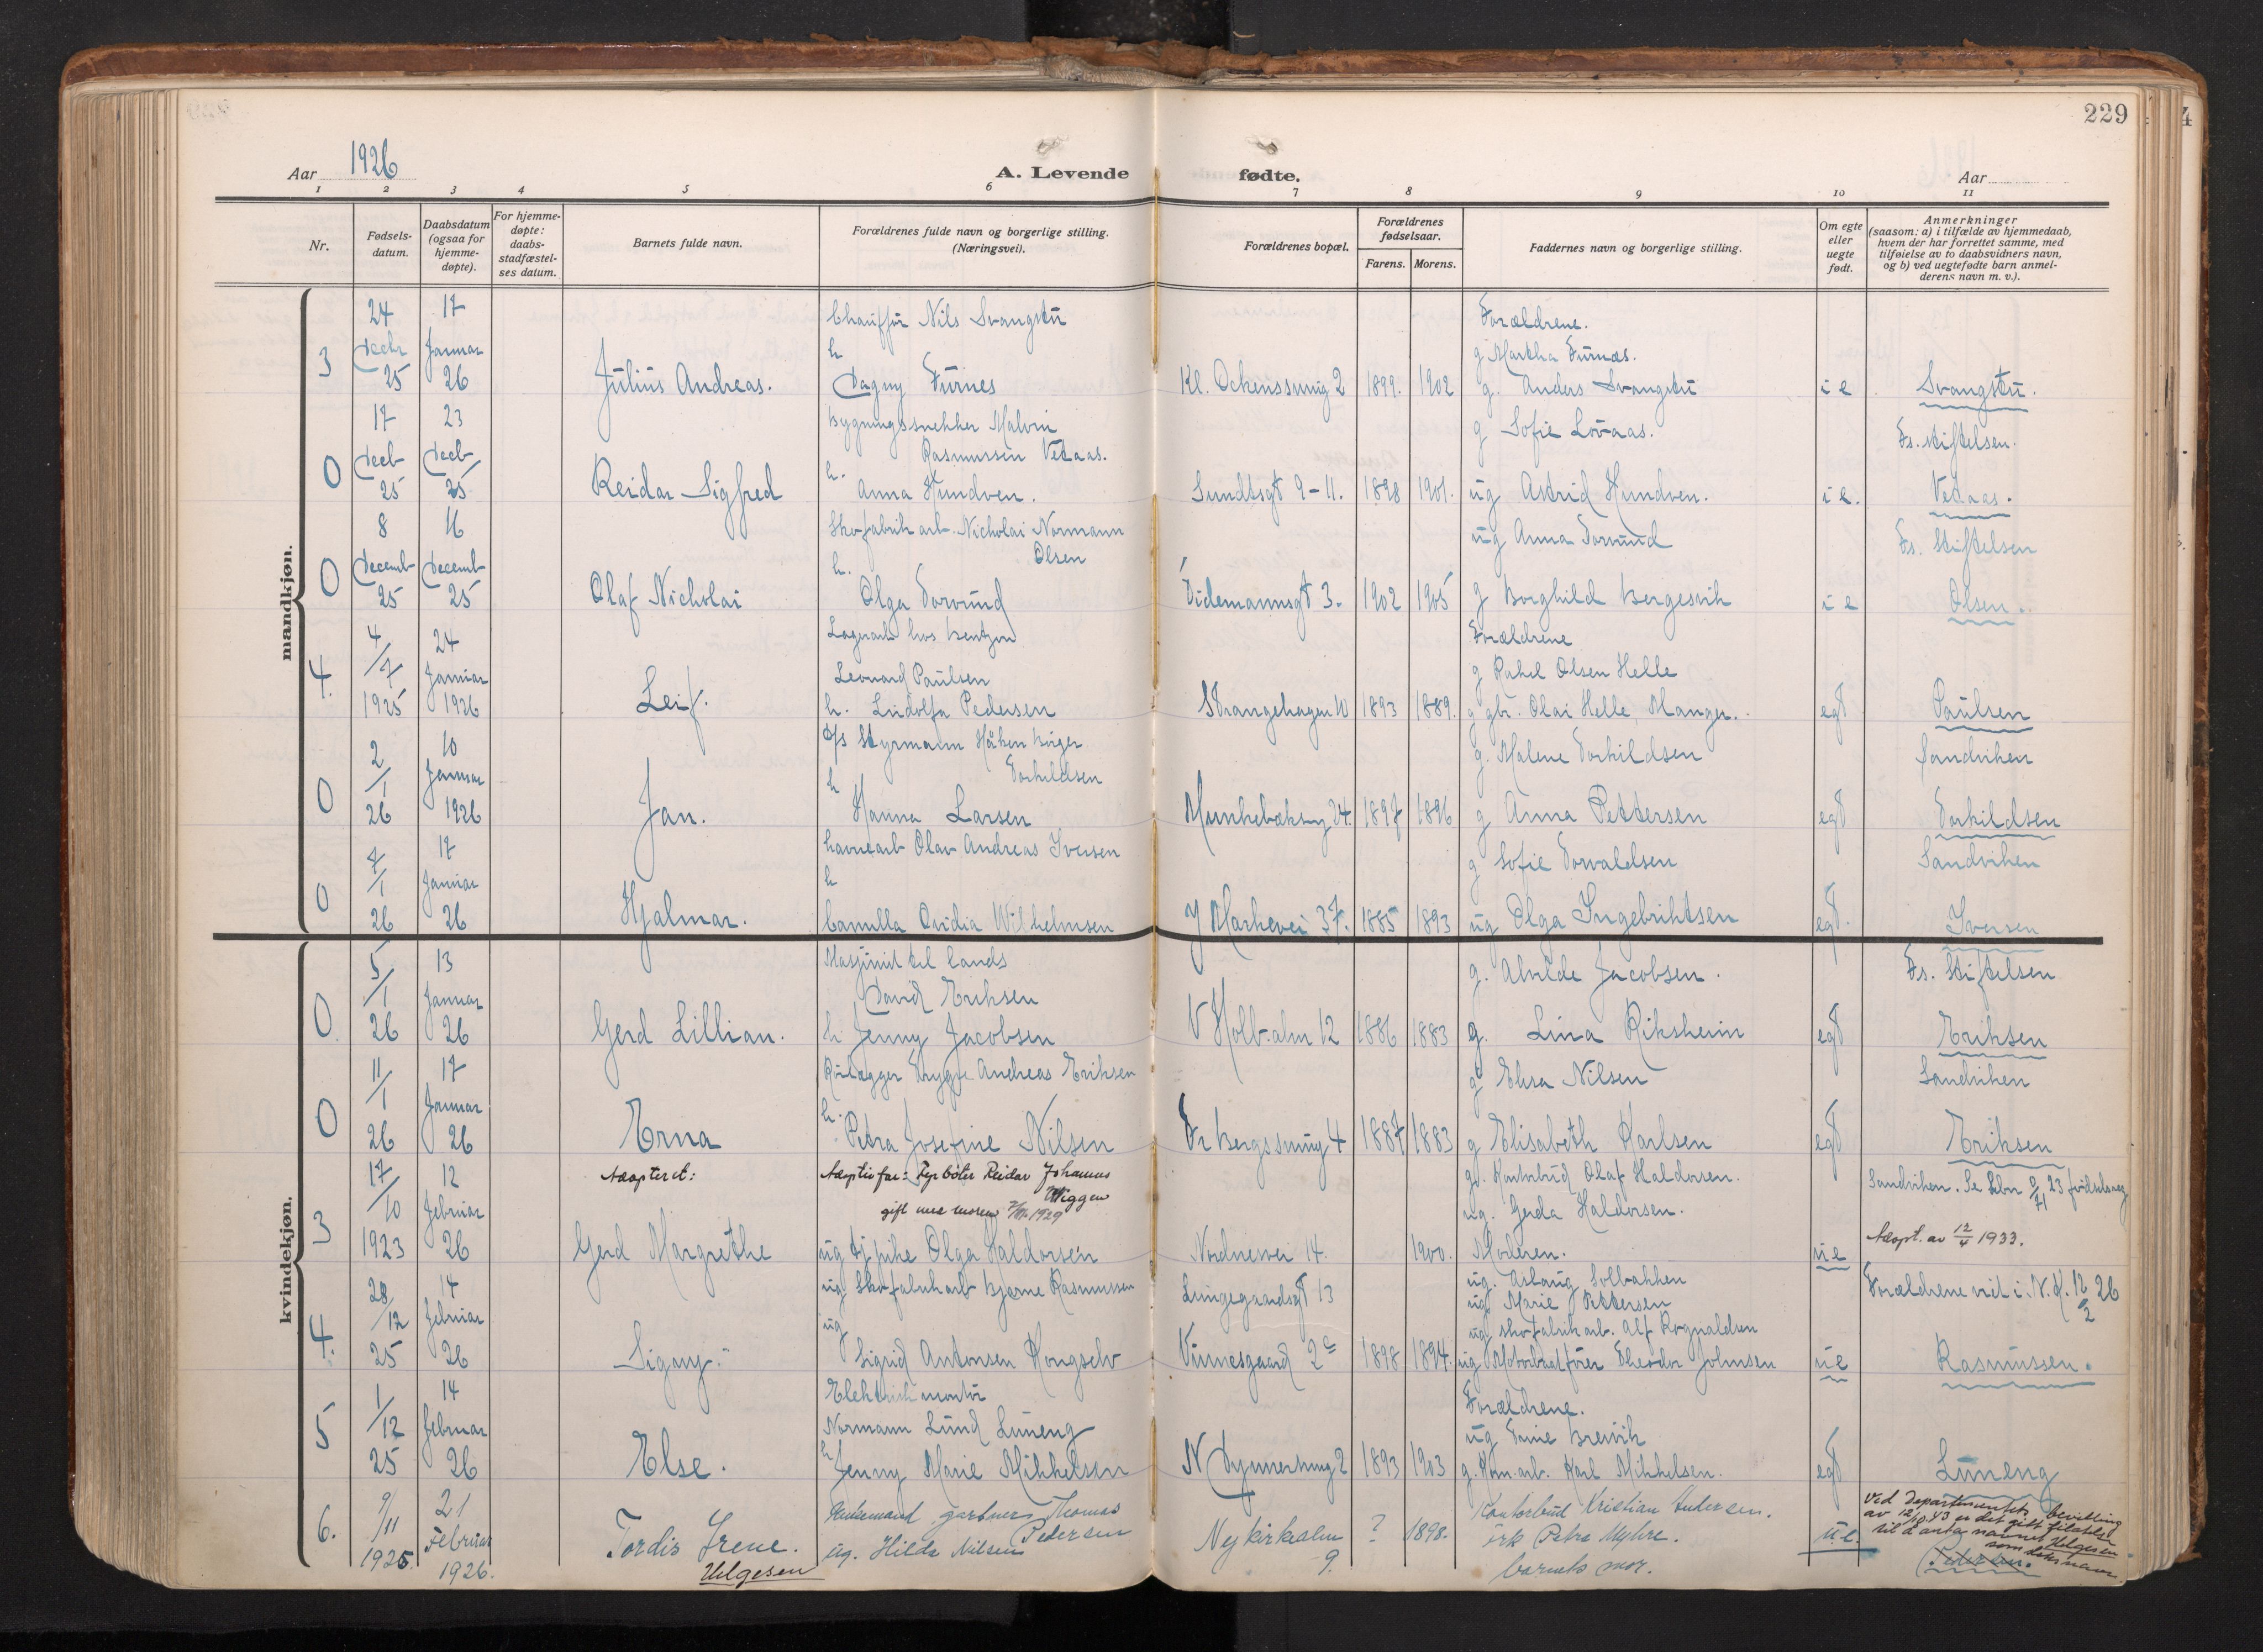 229
Aar 1926
A. Levende fødte.
Aar
1 2 3 4 5 6 7 8 9 10 11
Nr.
Fødsels-
datum.
Daabsdatum
(ogsaa for
hjemme-
døpte).
For hjemme-
døpte:
daabs-
stadfæstel-
ses datum.
Barnets fulde navn.
Forældrenes fulde navn og borgerlige stilling.
(Næringsvei).
Forældrenes bopæl.
Forældrenes
fødselsaar.
Farens. Morens.
Faddernes navn og borgerlige stilling.
Om egte
eller
uegte
født.
Anmerkninger
(saasom: a) i tilfælde av hjemmedaab,
hvem der har forrettet samme, med
tilføielse av to daabsvidners navn,
og b) ved uegtefødte barn anmel-
derens navn m. v.).
mandkjøn.
3
24
Decbr
25
17
Januar
26
Julius Andreas.
Chauffør Nils Svangstu
h
Dagny Furnes
Kl. Ockenssmug 2
1899. 1902
Forældrene.
g Martha Furnæs.
g. Anders Svangstu
i e
Svangstu.
0
17
Decb
25
23
Decb
25
Reidar Sigfred
Bygningssnekker Malvin
Rasmussen Vedaas.
h.
Anna Hundven.
Sundtsgt 9-11.
1898 1901.
g Sofie Lovaas.
ug Astrid Hundven.
i e.
Fs. stiftelsen.
Vedaas.
0
8
Decemb
25
16
Decemb
25
Olaf Nicholai
Skofabrik arb. Nicholai Normann
Olsen
h.
Olga Torvund
Tidemannsgt 3.
1902 1905
ug Anna Torvund
g Borghild Bergesvik
i e
Fs. Stiftelsen
Olsen.
4.
4
/7
1925
24
Januar
1926
Leif.
Lagerarb hos Bentzon
Leonard Paulsen
h. Lindolfa Pedersen
Strangehagen 10
1893 1889.
Forældrene
g Rahel Olsen Helle
g gbr. Olai Helle, Manger.
egt
Paulsen
0
2
/1
26
10
Januar
1926
Jan.
D/s Styrmann Håken Birger
Torkildsen
h
Hanna Larsen
Munkebæksmg 24.
1897 1896
g. Malene Torkildsen
g Anna Pettersen
egt
Sandviken
Torkildsen
0
7
/1
26
17
Januar
26
Hjalmar.
Havnearb Olav Andreas Iversen
h
Camilla Ovidia Wilhelmsen
Y Markevei 37.
1885 1893
g Sofie Torvaldsen
ug Olga Ingebriktsen
egt.
Sandviken
Iversen
kvindekjøn.
0.
5
/1
26
13
Januar
26
Gerd Lillian.
Maskinist til lands
David Eriksen
h Jenny Jacobsen
V Holb-alm 12
1886 1883
g. Alvilde Jacobsen.
g. Lina Riksheim
egt
Fs. Stiftelsen
Eriksen
0
11
/1
26
17
Januar
26
Erna
Rørlægger Trygve Andreas Eriksen
h.
Petra Josefine Nilsen
Fr Bergssmug 4
1887 1883
g Elisa Nilsen
g Elisabeth Karlsen
egt
Sandviken
Eriksen
3
17
/10
1923
12
Februar
26
Adopteret:
Gerd Margrethe
Adoptivfar: Fyrbøter Reidar Johannes
Wiggen
gift med moren 1929
ug tjpike Olga Haldorsen
Nordnesvei 14.
1900.
g. Kontorbud Olaf Haldorsen.
ug. Gerda Haldorsen.
Moderen.
ue
Sandviken. Se
Adopt. av 12/4 1933.
4.
28
/12
25
14
Februar
26
Signy.
ug Skofabrikarb Bjarne Rasmussen
ug
Sigrid Antonsen Kongselv
Lungegaardsgt 13
Vinnesgaard 2c
1898 1894.
ug. Aslaug Solbakken
ug Marie Pettersen
ug skofabrik arb. Alf Rognaldsen
ug Motorbaatfører Theodor Johnsen
ue
Forældrene viet i N.K. 12/2 26
Rasmussen.
5
1
/12
25
14
Februar
26
Else.
Elektrisk montør
Normann Lund Luneng
h
Jenny Marie Mikkelsen
N Dynnersmug 2
1893 1903
Forældrene.
ug Trine Breivik
g. Kom.arb. Karl Mikkelsen.
egt
Luneng
6.
9
/11
1925.
21
Februar
1926.
Tordis Irene.
Helgesen
gartner Thomas
Pedersen
ug. Hilda Nilsen
Nykirkealm
9.
? 1898.
Kontorbud Kristian Andersen.
Petra Myhre.
barnets mor.
u.e.
Ved Departementets bevilling
av 12/10 43 er det gitt tillatelse
til å anta navnet Helgesen
som slektsnavn.
(Pedersen.